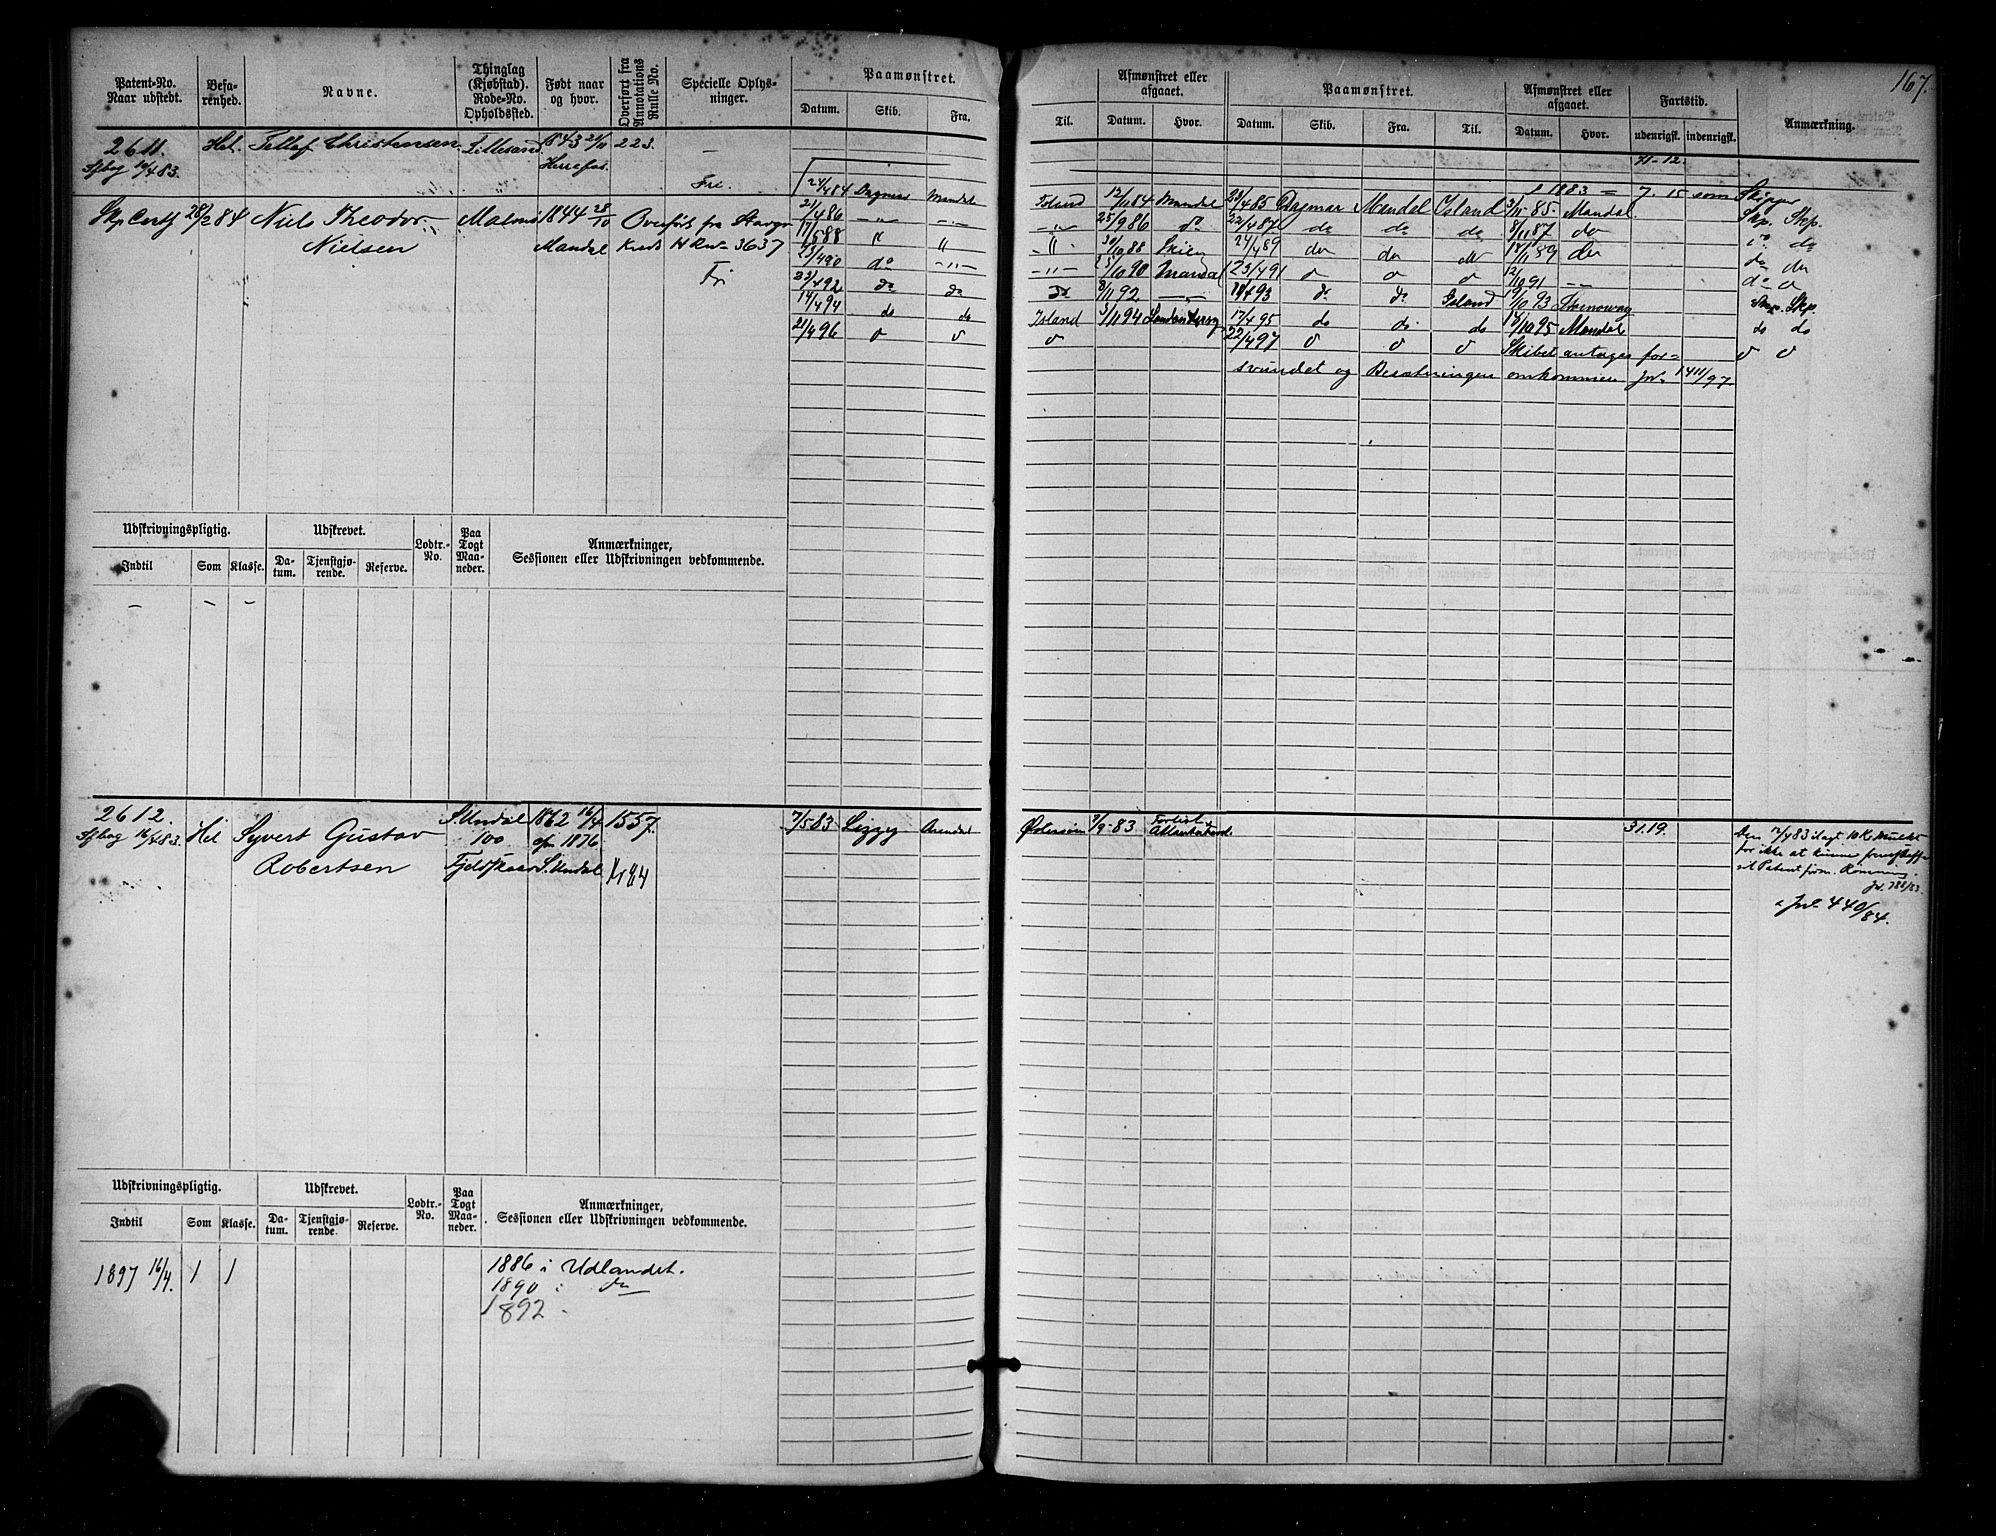 167.
Patent-No.
Naar udstedt.
Befa-
renhed.
Navne.
Thinglag
(Kjøbstad).
Rode-No.
Opholdssted.
Født naar
og hvor.
Overført fra
Annotations
Rulle No.
Specielle Oplys-
ninger.
Paamønstret.
Datum. Skib. Fra.
Til.
Afmønstret eller
afgaaet.
Datum. Hvor.
Paamønstret.
Datum. Skib. Fra. Til.
Afmønstret eller
afgaaet.
Datum. Hvor.
Fartstid.
udenrigsk. indenrigsk.
Anmærkning.
2611. Hel. Tellef Christensen Lillesand 1843 21/11 223. —
Sfbog 16/4 83.
Fri.
71-12.
1883 = 7. 15 som Skipper
24/4 84 Dagmar Mandal Island 12/11 84 Mandal 23/4 85 Dagmar Mandal Island 3/11 85. Mandal. Skp. Skp.
Skp Certf 28/2 84 Niels Theodor Malmø 1844 28/10 Overført fra
Nielsen Mandal Kreds H R No 3637
Fri
21/4 86 -"- -"- -"- 25/9 86 do 22/4 87 do do do 8/11 87 do do do
17/5 88 " " -"- 30/10 88 Skien 24/4 89 do do do 18/11 89 do do do
21/4 90 do -"- -"- 25/10 90 Mandal 23/4 91 o o o 12/10 91 -- do o
23/4 92 do do do 8/11 92 -"- 18/4 93 do do Island 19/10 93 Stornoway Skp. Skp.
14/4 94 do do Island 3/11 94 17/4 95 do do do 18/10 95 Mandal do do
21/4 96 o o o 22/4 97 o o o Skibet antages for= o o
svundet og Besætningen omkommen Jno 1411/97
Udskrivningspligtig.
Indtil Som Klasse.
Udskrevet.
Da-
tum.
Tjenstgjø-
rende.
Reserve.
Lodtr.-
No.
Paa
Togt
Maa-
neder.
Anmærkninger,
Sessionen eller Udskrivningen vedkommende.
— — —
2612. Hel Syvert Gustav S. Undal 1862 16/4 1557.
Sfbog 16/4 83. Robertsen 100 1876
Fjeldskaar S. Undal
7/5-83 Lizzy Arendal Østersøen 7/9-83. Forlist
31.19.
Den 12/4 83 ilagt 10 Kr Mulkt
for ikke at kunne fremskaffe
sit Patent Rømning.
Jr. 388/83.
Jno 440/84.
Udskrivningspligtig.
Indtil Som Klasse.
Udskrevet.
Da-
tum.
Tjenstgjø-
rende.
Reserve.
Lodtr.-
No.
Paa
Togt
Maa-
neder.
Anmærkninger,
Sessionen eller Udskrivningen vedkommende.
1897 16/4. 1 1 1886 i Udlandet.
1890 i do
1892 -